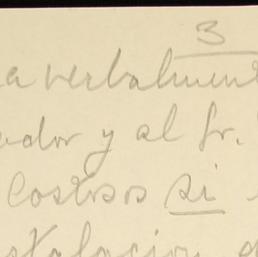 3
a verbalment
ador y al Sr.
Costosos si
stalacion d